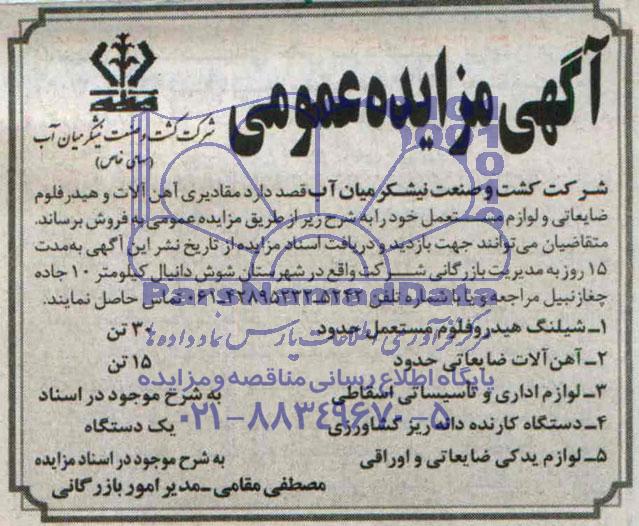 آگهی مزایده عمومی
شرکت کشت و صنعت نیشکر میان آب
(سهامی خاص)
شرکت کشت و صنعت نیشکر میان آب قصد دارد مقادیری آهن آلات و هیدرفلوم
ضایعاتی و لوازم مستعمل خود را به شرح زیر از طریق مزایده عمومی به فروش برساند.
متقاضیان می‌توانند جهت بازدید و دریافت اسناد مزایده از تاریخ نشر این آگهی به مدت
۱۵ روز به مدیریت بازرگانی شرکت واقع در شهرستان شوش دانیال کیلومتر ۱۰ جاده
چغازنبیل مراجعه و یا با شماره تلفن ۰۶۱ تماس حاصل نمایند.
۱ـ شیلنگ هیدروفلوم مستعمل حدود ۳۰ تن
۲ـ آهن آلات ضایعاتی حدود ۱۵ تن
۳ـ لوازم اداری و تاسیساتی اسقاطی به شرح موجود در اسناد
۴ـ دستگاه کارنده دانه ریز کشاورزی یک دستگاه
۵ـ لوازم یدکی ضایعاتی و اوراقی به شرح موجود در اسناد مزایده
مصطفی مقامی ـ مدیر امور بازرگانی
ParsNamadData
مرکز فرآوری اطلاعات پارس نماد داده ها
پایگاه اطلاع رسانی مناقصه و مزایده
۰۲۱-۸۸۳۴۹۶۷۰-۵